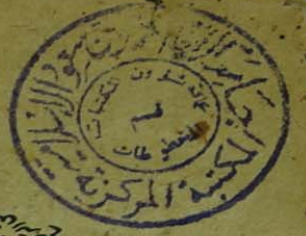 جامعة الإمام محمد بن سعود الإسلامية
عمادة شؤون المكتبات
المخطوطات
المكتبة المركزية